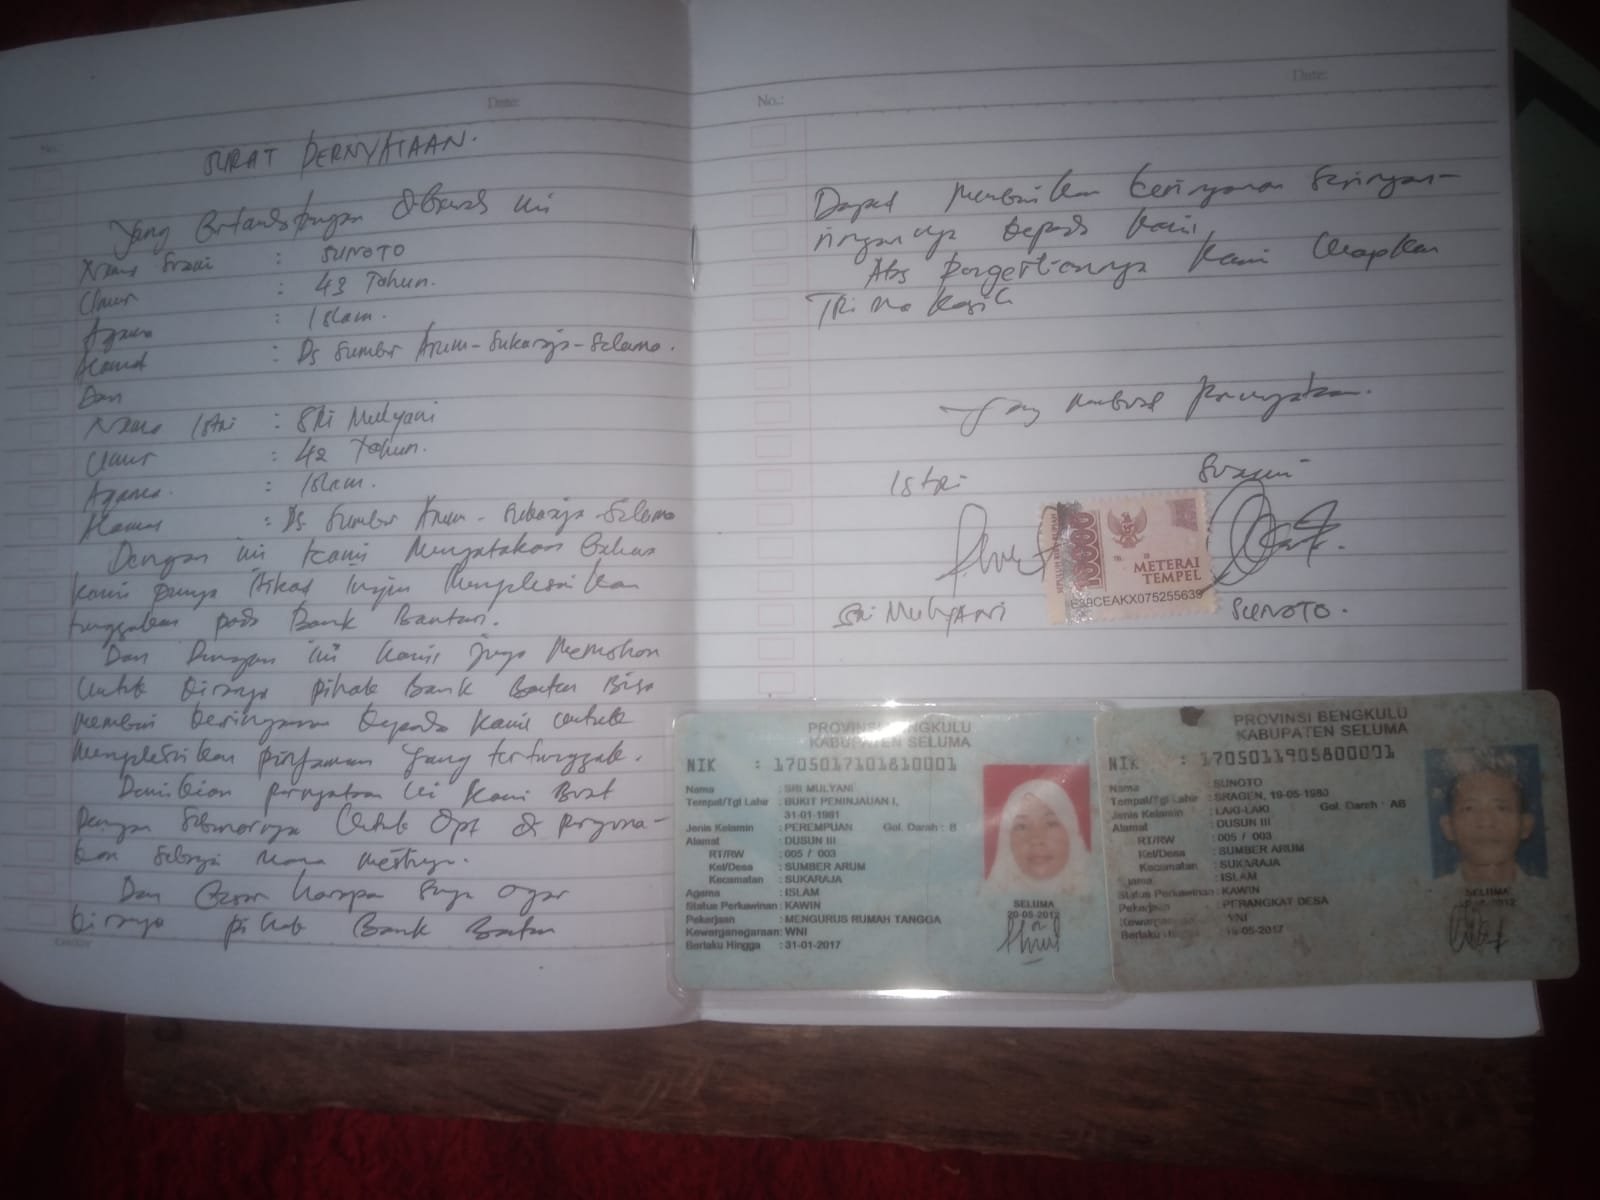 Date:
No.
SURAT PERNYATAAN.
Yang bertandatangan dibawah ini
Nama Suami : SUNOTO
Umur : 43 Tahun.
Agama : Islam.
Alamat : Ds Sumber Arum - Sukaraja - Seluma.
Dan
Nama Istri : SRi Mulyani
Umur : 42 Tahun.
Agama. : Islam.
Alamat : Ds Sumber Arum - Sukaraja - Seluma
Dengan ini kami Menyatakan bahwa
kami punya itikad ingin Menyelesaikan
tunggakan pada Bank Bantan.
Dan Dengan ini kami juga Memohon
Untuk kiranya pihak Bank Bantan Bisa
memberi keringanan kepada kami untuk
Menyelesaikan pinjaman yang tertunggak.
Demikian pernyataan ini kami Buat
Dengan sebenarnya Untuk dpt di perguna-
kan sebagai mana mestinya.
Dan Besar harapan saya agar
kiranya pihak Bank Bantan
No.:
Date:
Dapat Memberikan keringanan seringan-
ringannya kepada kami
Atas pengertiannya kami Ucapkan
TRima kasih
Yang membuat Pernyataan.
Istri
Suami
10000
METERAI
TEMPEL
CEAKX075255639
Sri MulyANi
SUNOTO.
PROVINSI BENGKULU
KABUPATEN SELUMA
NIK : 1705017101810001
Nama : SRI MULYANI
Tempat/Tgl Lahir : BUKIT PENINJAUAN I,
31-01-1981
Jenis Kelamin : PEREMPUAN Gol. Darah : B
Alamat : DUSUN III
RT/RW : 005 / 003
Kel/Desa : SUMBER ARUM
Kecamatan : SUKARAJA
Agama : ISLAM
Status Perkawinan : KAWIN
Pekerjaan : MENGURUS RUMAH TANGGA
Kewarganegaraan: WNI
Berlaku Hingga : 31-01-2017
SELUMA
20-05-2012
PROVINSI BENGKULU
KABUPATEN SELUMA
NIK : 1705011905800001
Nama : SUNOTO
Tempat/Tgl Lahir : SRAGEN, 19-05-1980
Jenis Kelamin : LAKI-LAKI Gol. Darah : AB
Alamat : DUSUN III
RT/RW : 005 / 003
Kel/Desa : SUMBER ARUM
Kecamatan : SUKARAJA
Agama : ISLAM
Status Perkawinan : KAWIN
Pekerjaan : PERANGKAT DESA
WNI
Berlaku Hingga : 19-05-2017
SELUMA